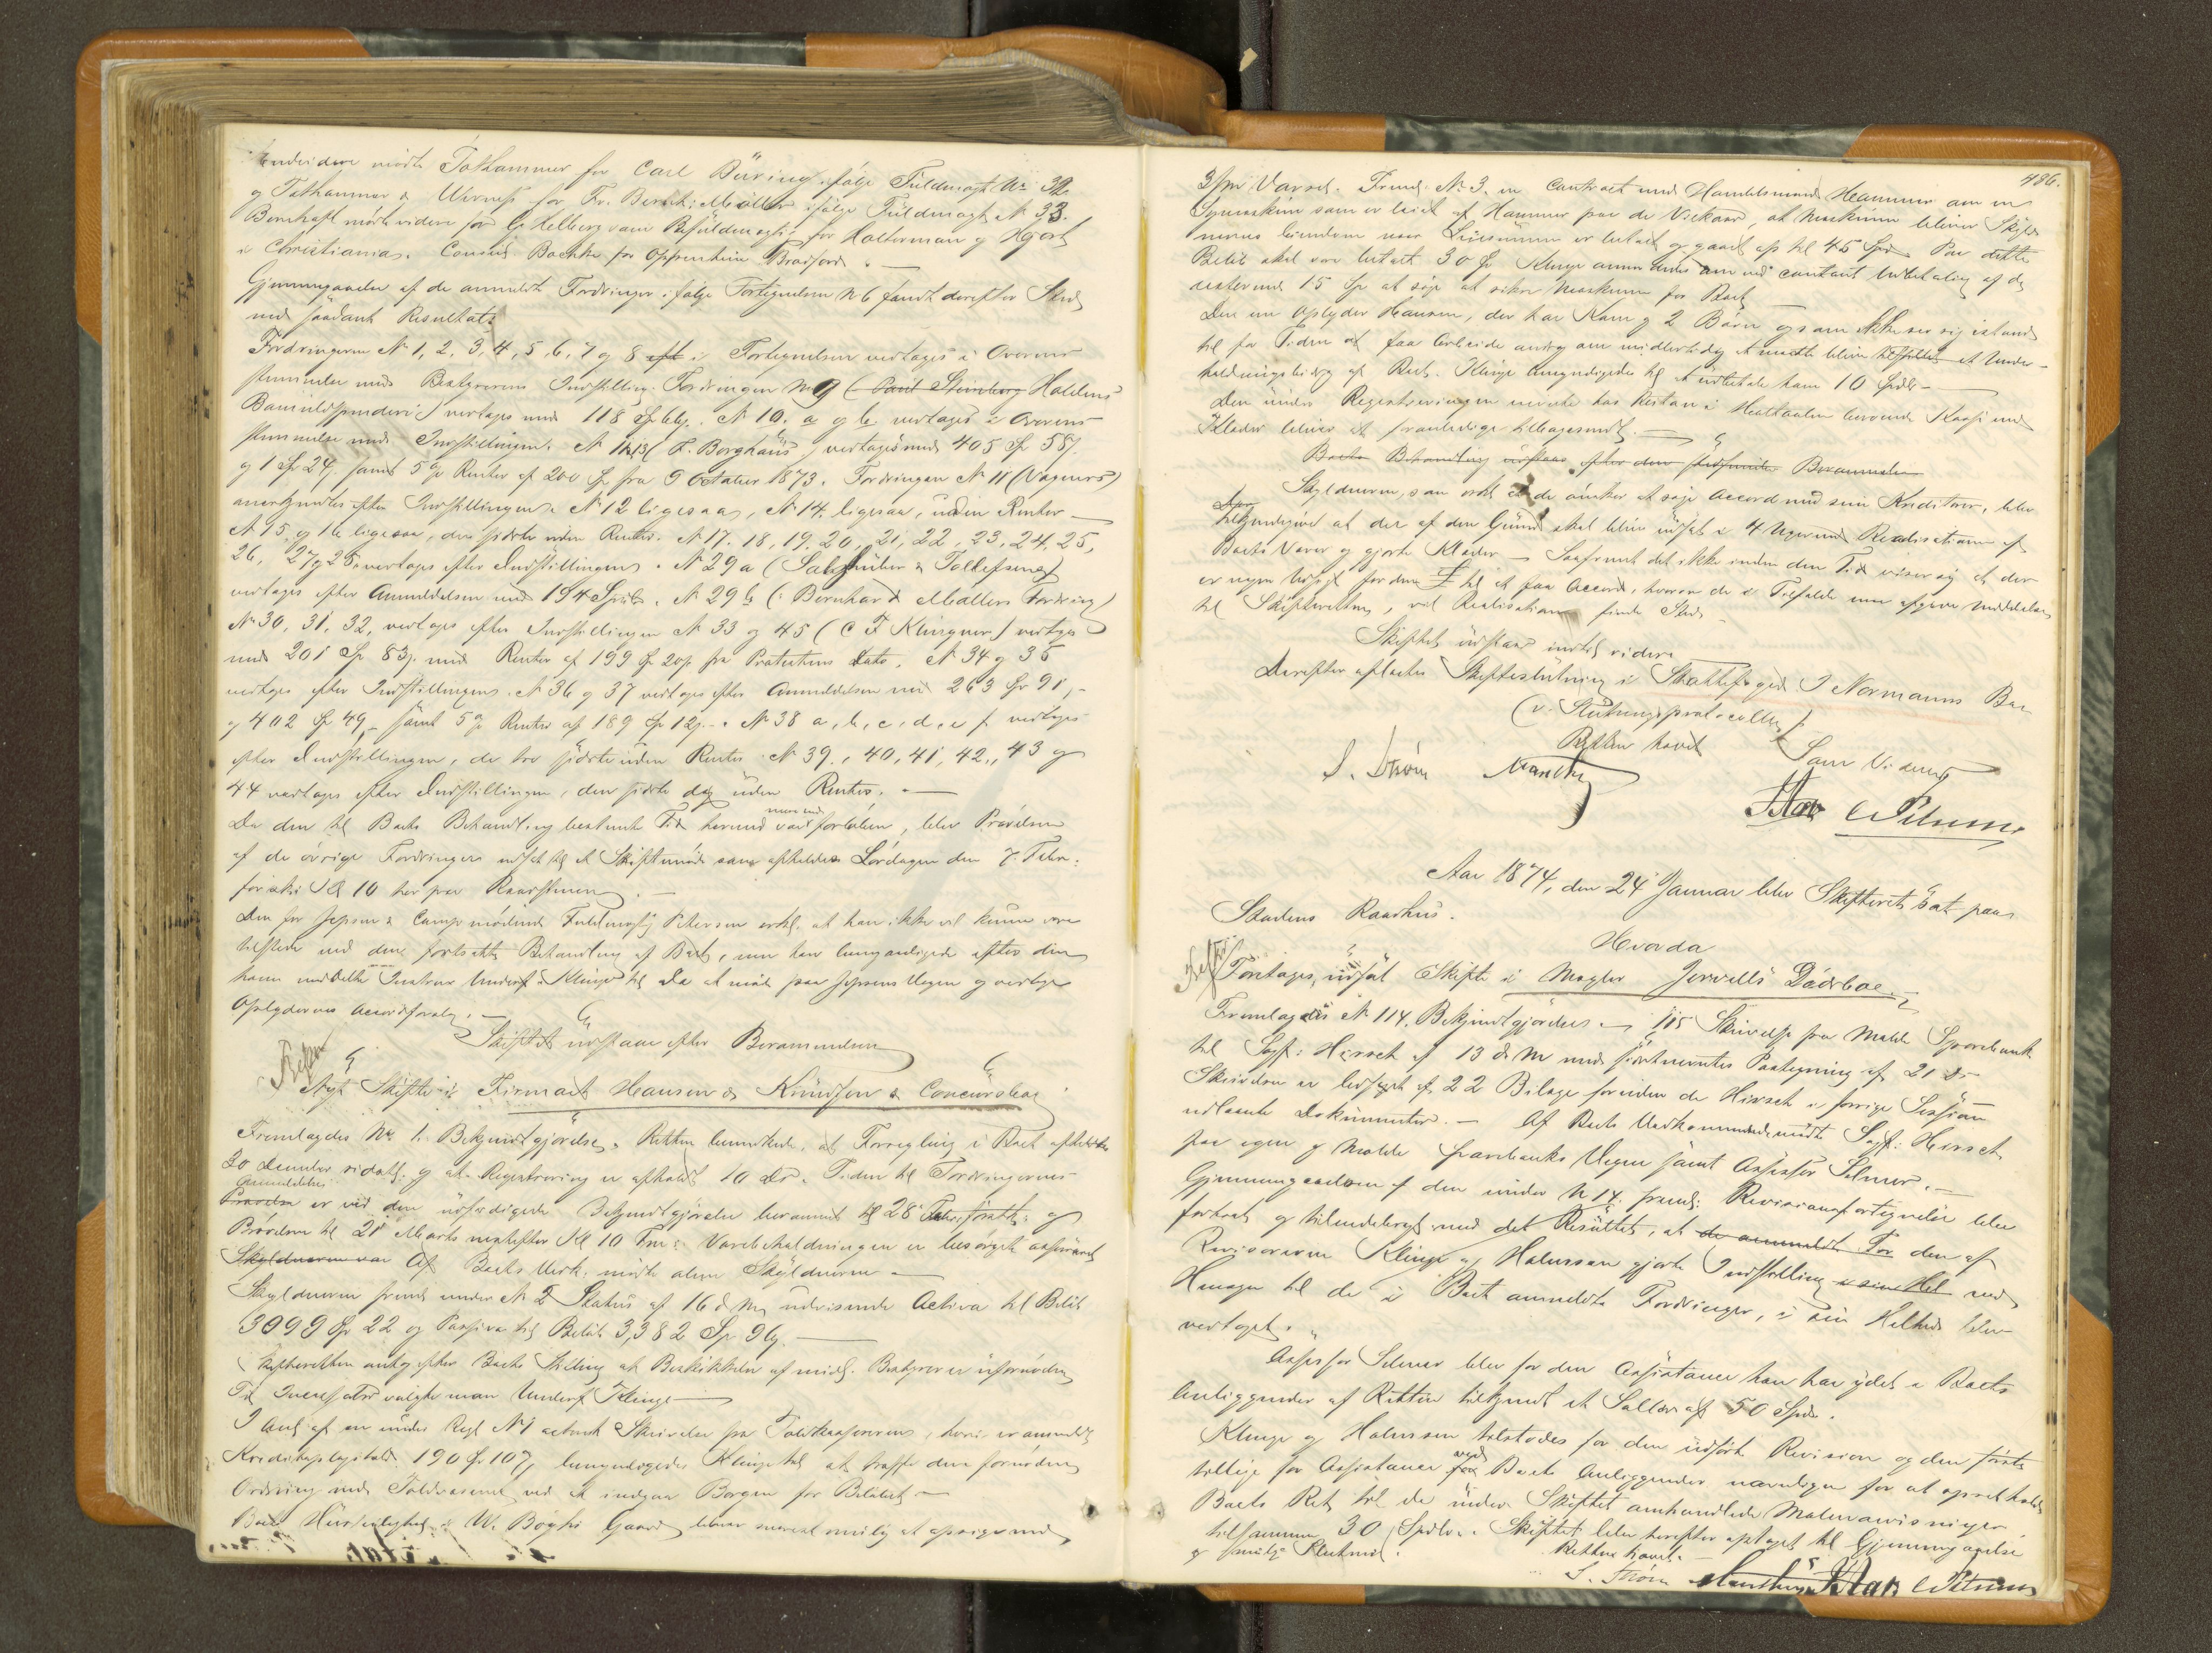 Endvidere mødte Tøthammer for Carl Büring ifølge Fuldmagt No 32
og Tøthammer & Werness for Fr. Berth: Møller ifølge Fuldmagt N 33.
Bernhoft mødte videre for G. Helberg som Befuldmægtig for Holterman og Hjort
i Christiania. Consul Baehke for Oppenheim Bradford. —
Gjennemgaaelse af de anmeldte Fordringer ifølge Fortegnelsen N 6 fandt derefter Sted
med saadant Resultat:
Fordringerne No 1, 2, 3, 4, 5, 6, 7 og 8 i Fortegnelsen vedtages i Overens-
stemmelse med Bestyrerens Indstilling. Fordringen N 9 (Paul Steinberg Haldens
Bomuldspinderi) vedtages med 118 Sp. N 10. a og b. vedtages i Overens-
stemmelse med Indstillingen. N 13 (F. Borghaus) vedtages med 405 Sp 58 s
og 1 Sp 24, samt 5 % Renter af 200 Sp fra 9 October 1873. Fordringen N 11 (Wagners)
anerkjendtes efter Indstillingen. N 12 ligesaa, N 14. ligesaa, uden Renter —
N 15. og 16 ligesaa, den sidste uden Renter. N 17. 18, 19. 20, 21, 22, 23, 24. 25,
26, 27 og 28 vedtages efter Indstillingen. N 29 a (& Tollefsens)
vedtages efter Anmeldelsen med 154 Spd. N 29 b (Bernhard Møllers Fordring)
No 30, 31, 32, vedtages efter Indstillingen N 33 og 45 (C F Klingner) vedtages
med 201 Sp 83 s. med Renter af 199 Sp 20 s. fra Protestens Dato. N 34 og 35
vedtages efter Indstillingen. N 36 og 37 vedtages efter Anmeldelsen med 263 Sp 91,-
og 402 Sp 49,- samt 5 % Renter af 189 Sp 12 s. N 38 a, b, c, d, e f. vedtages
efter Indstillingen, de to sidste uden Renter. N 39., 40, 41, 42., 43 og
44 vedtages efter Indstillingen, den sidste dog uden Renter. —
Da den til Boets Behandling bestemte Tid hermed var forløben, blev Prøvelsen
af de øvrige Fordringer udsat til et Skiftemøde som afholdes Lørdagen den 7. Febr.
førstk. Kl 10 her paa Raadstuen. —
Den for Jepsen & Comp mødende Fuldmægtig Petersen erkl. at han ikke vil kunne være
tilstede ved den fortsatte Behandling af Boet, men han bemyndigede efter den
ham meddelte Instrux Underf. Klinge til da at møde paa Jepsens Vegne og vedtage
Opbyderens Accordforslag. —
Skiftet udstaar efter Berammelsen
Nyt Skifte i Firmaet Hansen & Knudsen's Concursboe
Fremlagdes No 1. Bekjendtgjørelse. Retten bemærkede, at Forsegling i Boet afholdtes
30 December sidstl. og at Registrering er afholdt 10 ds. Tiden til Fordringernes
Anmeldelse
Prøvelse er ved den udfærdigede Bekjendtgjørelse berammet til 28 Febr. førstk. og
Prøvelsen til 21 Marts næstefter Kl 10 Fm: Varebeholdningen er besørget assureret
Skyldneren var Af Boets Vedk. mødte alene Skyldneren —
Skyldneren freml. under N 2 Status af 16 d M, udvisende Activa til Beløb
3099 Sp 22 og Passiva til Beløb 3,382 Sp 96 s. —
Skifteretten antog efter Boets Stilling at Beskikkelse af midl. Bestyrer er ufornøden
Til Incassator valgte man Underf Klinge —
I Anl. af en under Regl N 1 Skrivelse fra Toldkassereren, hvori er anmeldt
Kreditoplagstold 190 Sp 107, bemyndigedes Klinge til at træffe den fornødne
Ordning med Toldvæsenet ved at indgaa Borgen for Beløbet —
Boets Huusleilighed i W. Boghs Gaard bliver snarest mulig at opsige med
486.
3 Mdr Varsel. Freml. N 3. en Contract med Handelsmand Hammer om en
Symaskine som er leiet af Hammer paa de Vilkaar, at Maskinen bliver Skyld-
nernes Eiendom naar Leiesummen er betalt og gaaet op til 45 Spd. Paa dette
Beløb skal være betalt 30 Sp. Klinge anmodedes om ved contant Udbetaling af de
resterende 15 Sp at søge at sikre Maskinen for Boet
Den ene Opbyder Hansen, der har Kone og 2 Børn og som ikke ser sig istand
til for Tiden at faa Arbeide androg om midlertidig at maatte blive tilstillet et Under-
holdningsbidrag af Boet. Klinge bemyndigedes til at udbetale ham 10 Spdlr —
Den under Registreringen nævnte hos Restan i beroende Kasse med
Klæder bliver at fraviges tilbagesendt. —
Boets Behandling udstaar efter den stedfundne Berammelse
Skyldneren, som erkl. at de ønsker at søge Accord med sine Kreditorer, blev
tilkjendegivet at der af den Grund skal blive udsat i 4 Uger med Realisationen af
Boets Varer og gjorte Klæder — Saafremt det ikke inden den Tid viser sig at der
er nogen Udsigt for dem til at faa Accord, hvorom de i Tilfælde maa afgive Meddelelse
til Skifteretten, vil Realisationen finde Sted —
Skiftet udstaar indtil videre
Derefter afsagdes Skifteslutning i Skattefoged J Normanns Bo
(v. Slutningsprotocollen).
Retten hævet
Som Vidner
S. Strøm
Aar 1874, den 24 Januar blev Skifteret sat paa
Stadens Raadhus.
Hvorda
Foretages, udsat Skifte i Mægler Jervells Dødsboe. —
Fremlagdes N 114. Bekjendtgjørelsen. — 115 Skrivelse fra Molde Sparebank
til Sagf: Hirsch af 13 ds M med sidstnævntes Paategning af 21 ds
Skrivelsen er ledsaget af 22 Bilage foruden de Hirsch i forrige Session
udlaante Dokumenter. — Af Boets Vedkommende mødte Sagf: Hirsch
paa egen og Molde Sparebanks Vegne samt Assessor Selmer. —
Gjennemgaaelsen af den under N 14. freml: Revisionsfortegnelse blev
fortsat og tilendebragt med det Resultat, at de anmeldte For den af
Revisorerne Klinge og Halversen gjorte Indstilling i sin Hel med
Hensyn til de i Boet anmeldte Fordringer, i sin Helhed blev
vedtaget.
Assessor Selmer blev for den Assistance han har ydet i Boets
Anliggender af Retten tilkjendt et Salær af 50 Spd.
Klinge og Halversen tilstodes for den udførte Revision og den første
tillige for Assistance ved Boets Anliggender navnligen for at opretholde
Boets Ret til de under Skiftet omhandlede Malerianvisninger
tilsammen 30 Spdlr. Skiftet blev herefter optaget til Gjennemgaaelse
Retten hævet. —
S. Strøm